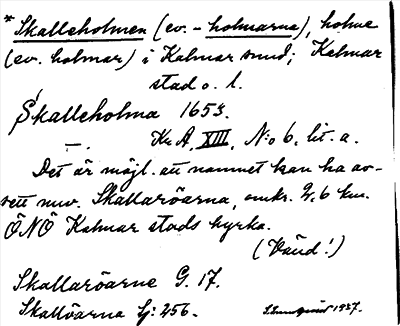 * Skalleholmen (ev. - holmarna), holme
(ev. holmar) i Kalmar sund; Kalmar
stad o. l.
Skalleholma 1653.
— . Ka A, XIII, N:o 6, lit. a.
Det är möjl. att namnet kan ha av-
sett nuv. Skallaröarna, omkr. 2,6 km.
ÖNÖ Kalmar stads kyrka.
(Vänd!)
Skallaröarne G. 17.
Skallöarna Ej: 256.
1937.